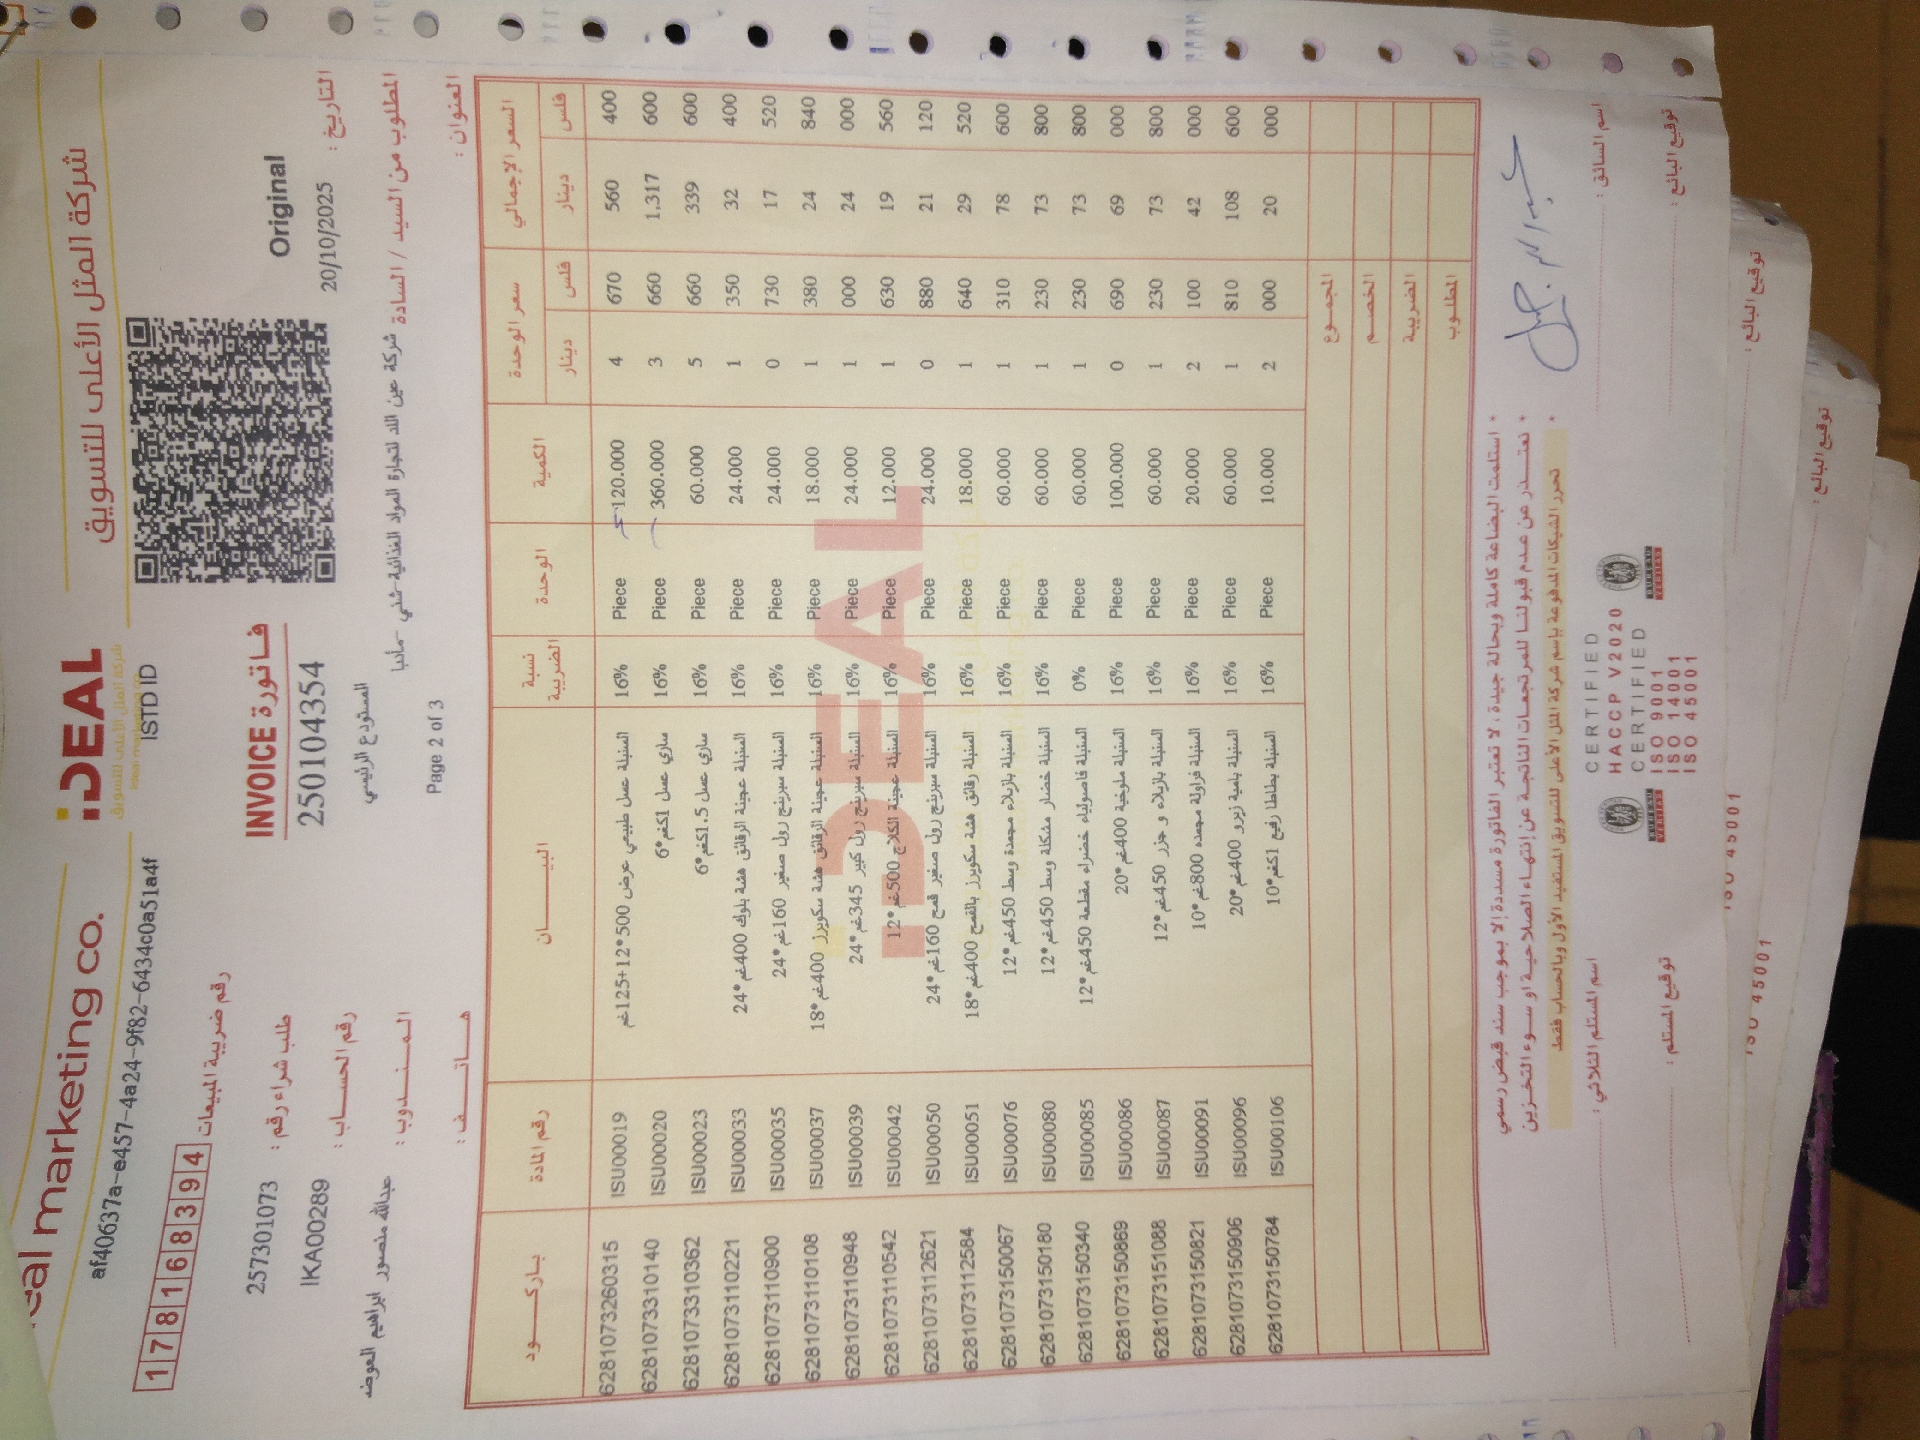 eal marketing co.
iDEAL
شركة المثل الأعلى للتسويق
شركة المثل الأعلى للتسويق
af40637a-e457-4a24-9f82-6434c0a51a4f
ISTD ID
178168394 رقم ضريبة المبيعات
فاتورة INVOICE
Original
257301073 طلب شراء رقم :
250104354
التاريخ : 20/10/2025
IKA00289 رقم الحساب :
المستودع الرئيسي
المطلوب من السيد / السادة شركة عين اللد لتجارة المواد الغذائية-شني -مأدبا
عبدالله منصور ابراهيم العوضه المندوب :
هاتف :
Page 2 of 3
العنوان :
باركود رقم المادة البيان نسبة الضريبة الوحدة الكمية سعر الوحدة السعر الإجمالي
دينار فلس دينار فلس
6281073260315 ISU00019 السنبلة عسل طبيعي عرض 500*12+125غم 16% Piece 120.000 4 670 560 400
6281073310140 ISU00020 ساري عسل 1كغم*6 16% Piece 360.000 3 660 1,317 600
6281073310362 ISU00023 ساري عسل 1.5كغم*6 16% Piece 60.000 5 660 339 600
6281073110221 ISU00033 السنبلة عجينة الرقائق هشة بلوك 400غم*24 16% Piece 24.000 1 350 32 400
6281073110900 ISU00035 السنبلة سبرينج رول صغير 160غم*24 16% Piece 24.000 0 730 17 520
6281073110108 ISU00037 السنبلة عجينة الرقائق هشة سكويرز 400غم*18 16% Piece 18.000 1 380 24 840
6281073110948 ISU00039 السنبلة سبرينج رول كبير 345غم*24 16% Piece 24.000 1 000 24 000
6281073110542 ISU00042 السنبلة عجينة الكلاج 500غم*12 16% Piece 12.000 1 630 19 560
6281073112621 ISU00050 السنبلة سبرينج رول صغير قمح 160غم*24 16% Piece 24.000 0 880 21 120
6281073112584 ISU00051 السنبلة رقائق هشة سكويرز بالقمح 400غم*18 16% Piece 18.000 1 640 29 520
6281073150067 ISU00076 السنبلة بازيلاء مجمدة وسط 450غم*12 16% Piece 60.000 1 310 78 600
6281073150180 ISU00080 السنبلة خضار مشكلة وسط 450غم*12 16% Piece 60.000 1 230 73 800
6281073150340 ISU00085 السنبلة فاصولياء خضراء مقطعة 450غم*12 0% Piece 60.000 1 230 73 800
6281073150869 ISU00086 السنبلة ملوخية 400غم*20 16% Piece 100.000 0 690 69 000
6281073151088 ISU00087 السنبلة بازيلاء و جزر 450غم*12 16% Piece 60.000 1 230 73 800
6281073150821 ISU00091 السنبلة فراولة مجمده 800غم*10 16% Piece 20.000 2 100 42 000
6281073150906 ISU00096 السنبلة بامية زيرو 400غم*20 16% Piece 60.000 1 810 108 600
6281073150784 ISU00106 السنبلة بطاطا رفيع 1كغم*10 16% Piece 10.000 2 000 20 000
iDEAL
المجموع
الخصم
الضريبة
المطلوب
* استلمت البضاعة كاملة وبحالة جيدة، لا تعتبر الفاتورة مسددة إلا بموجب سند قبض رسمي
* نعتذر عن عدم قبولنا للمرتجعات الناتجة عن إنتهاء الصلاحية او سوء التخزين
* تحرر الشيكات المدفوعة باسم شركة المثل الأعلى للتسويق المستفيد الأول وبالحساب فقط
اسم المستلم الثلاثي :
اسم السائق :
توقيع المستلم :
توقيع البائع :
CERTIFIED
HACCP V2020
CERTIFIED
ISO 9001
ISO 14001
ISO 45001
BUREAU VERITAS
BUREAU VERITAS
ISO 45001
توقيع البائع :
ISO 45001
توقيع البائع :